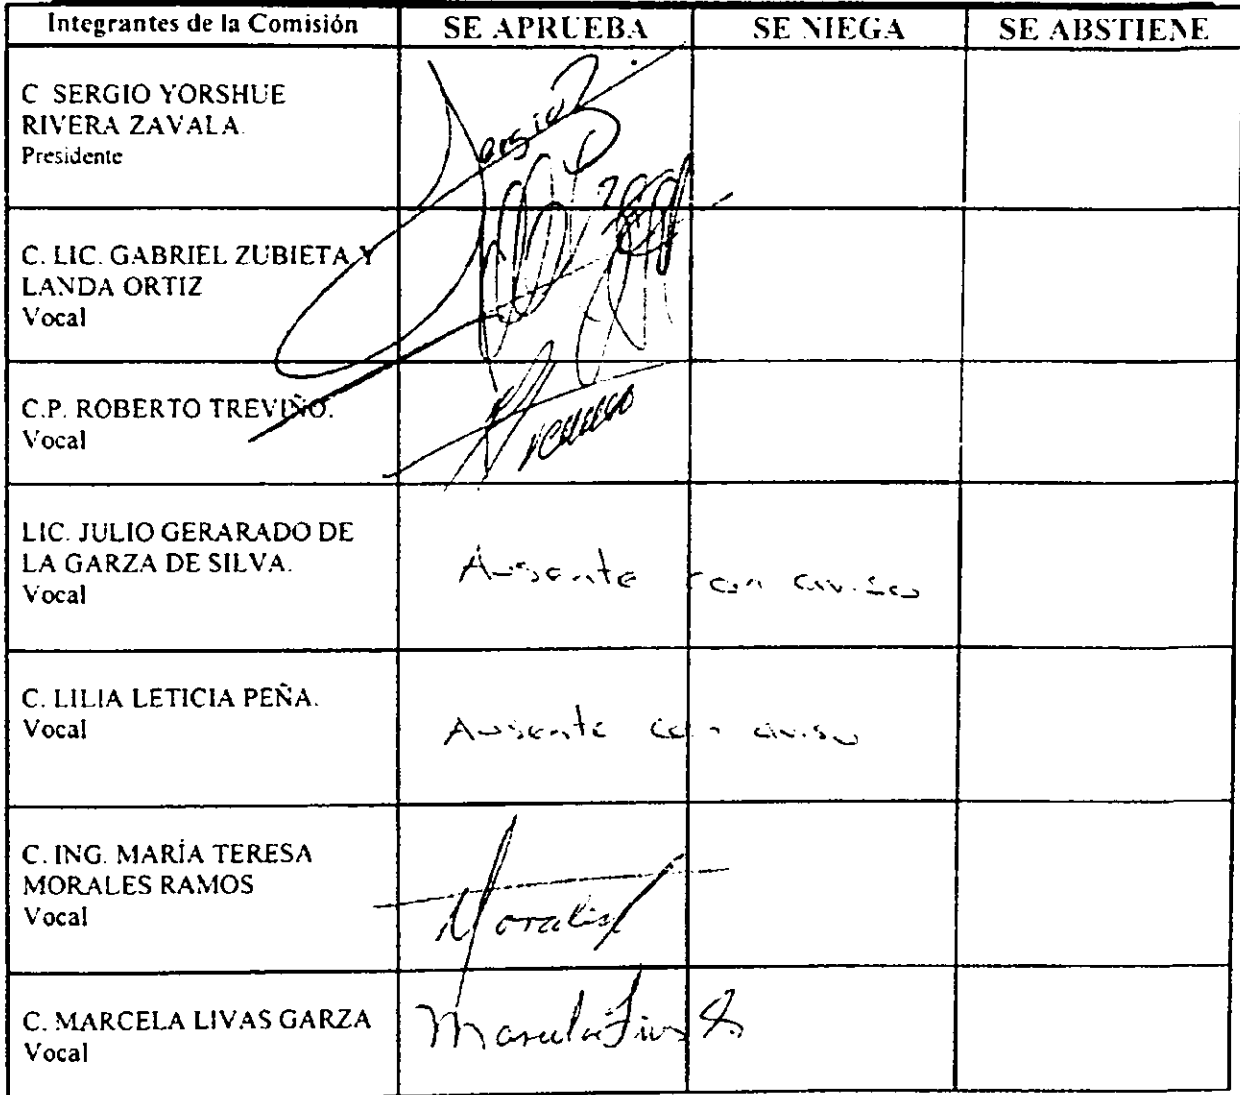 Integrantes de la Comisión SE APRUEBA SE NIEGA SE ABSTIENE
C SERGIO YORSHUE
RIVERA ZAVALA.
Presidente
C. LIC. GABRIEL ZUBIETA Y
LANDA ORTIZ
Vocal
C.P. ROBERTO TREVIÑO.
Vocal
LIC. JULIO GERARADO DE
LA GARZA DE SILVA.
Vocal
Ausente con aviso
C. LILIA LETICIA PEÑA.
Vocal
Ausente con aviso
C. ING. MARÍA TERESA
MORALES RAMOS
Vocal
Morales
C. MARCELA LIVAS GARZA
Vocal